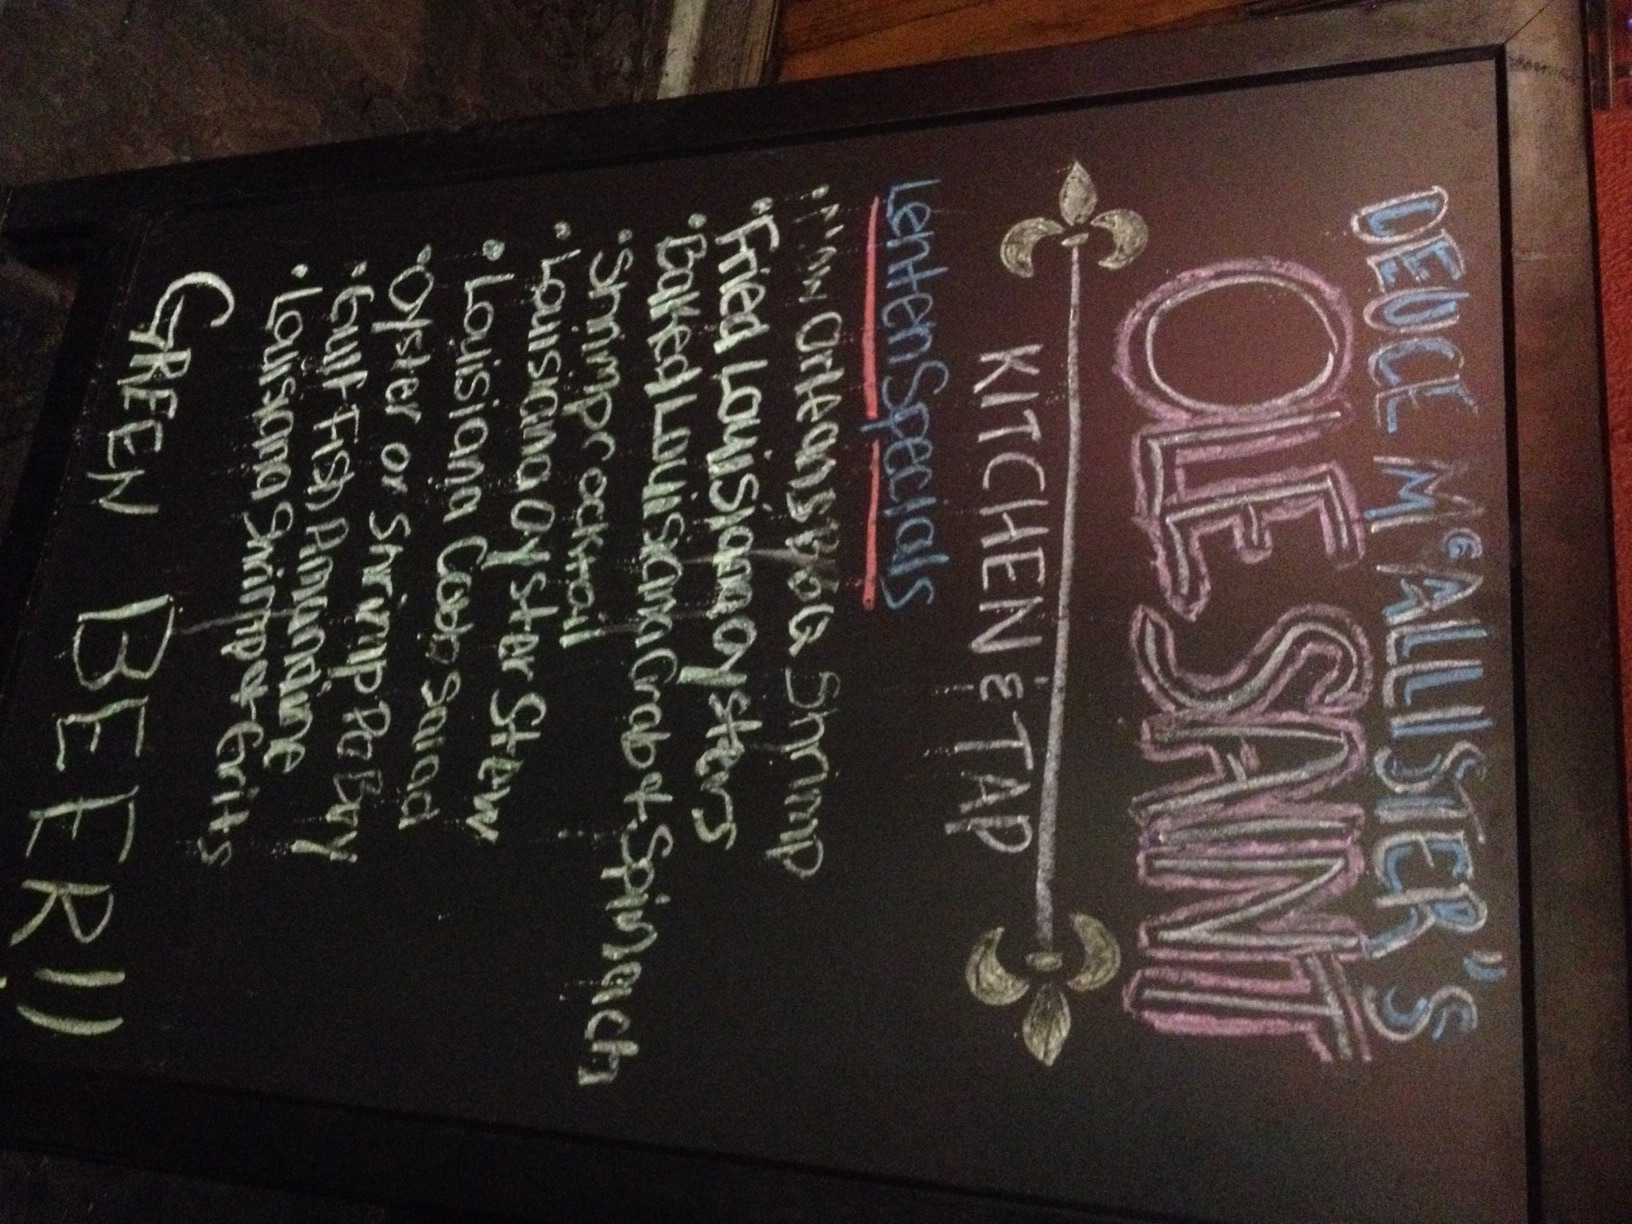 DEUCE McALLISTER'S
OLE SAINT
KITCHEN & TAP
Lenten Specials
• New Orleans BBQ Shrimp
• Fried Louisiana Oysters
• Baked Louisiana Crab & Spinach
• Shrimp cocktail
• Louisiana Oyster Stew
• Louisiana Cobb Salad
• Oyster or Shrimp Po Boy
• Gulf Fish Amandine
• Louisiana Shrimp & Grits
GREEN BEER!!